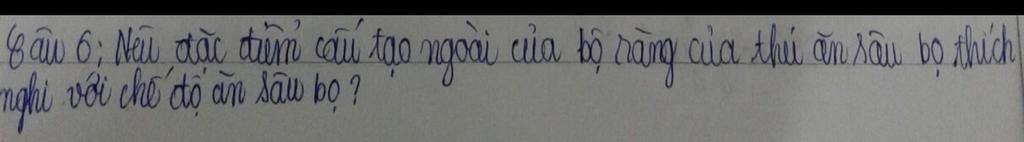 Câu 6: Nêu đặc điểm cấu tạo ngoài của bộ răng của thú ăn sâu bọ thích
nghi với chế độ ăn sâu bọ?